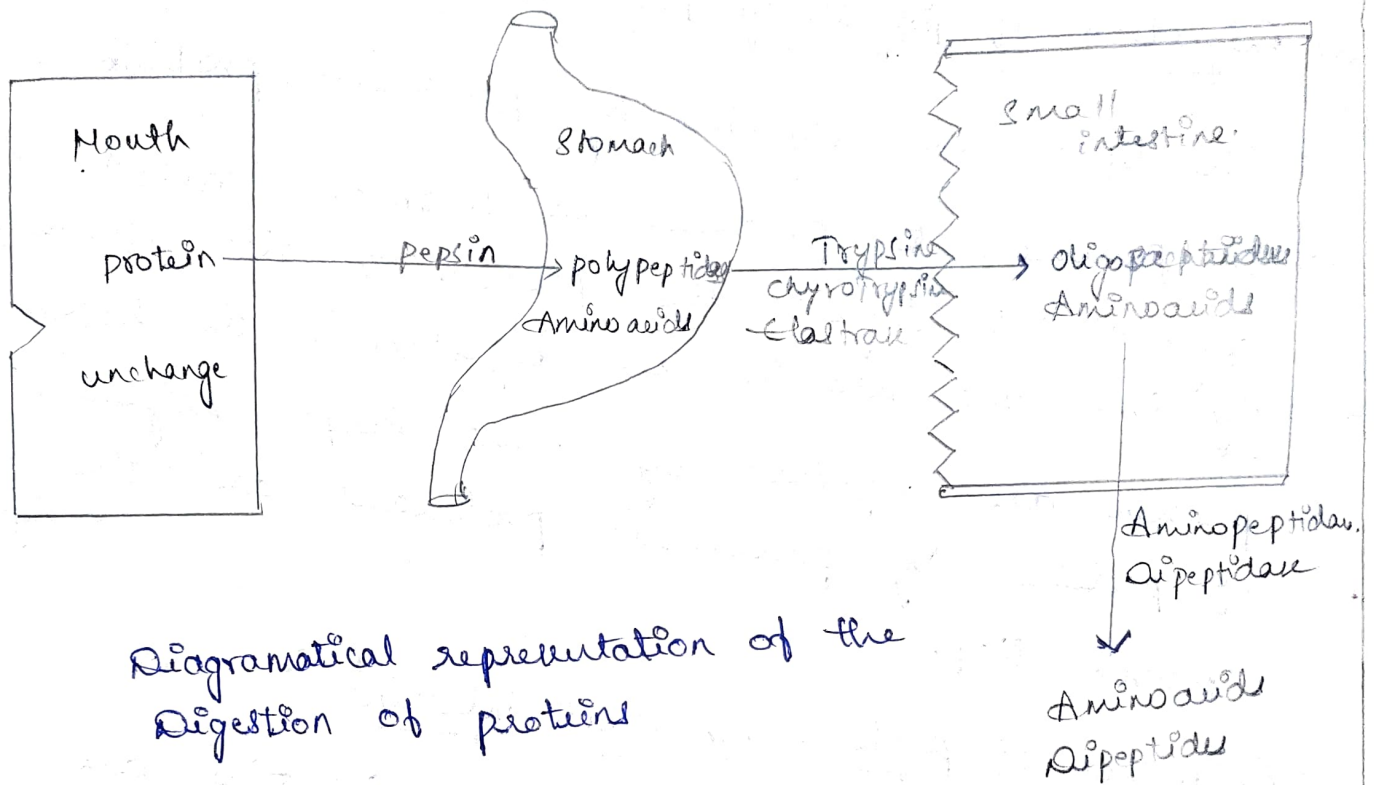 Mouth
protein
unchange
pepsin
Stomach
polypeptides
Aminoacids
Trypsin
Chyrotrypsin
Elastrase
Small
intestine.
Oligopeptides
Aminoacids
Aminopeptidase.
Dipeptidase
Aminoacids
Dipeptides
Diagramatical representation of the
Digestion of proteins